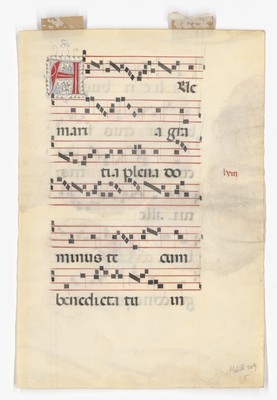 A RIC
mari a gra
tia plena do
lxiii
minus te cum
benedicta tu in